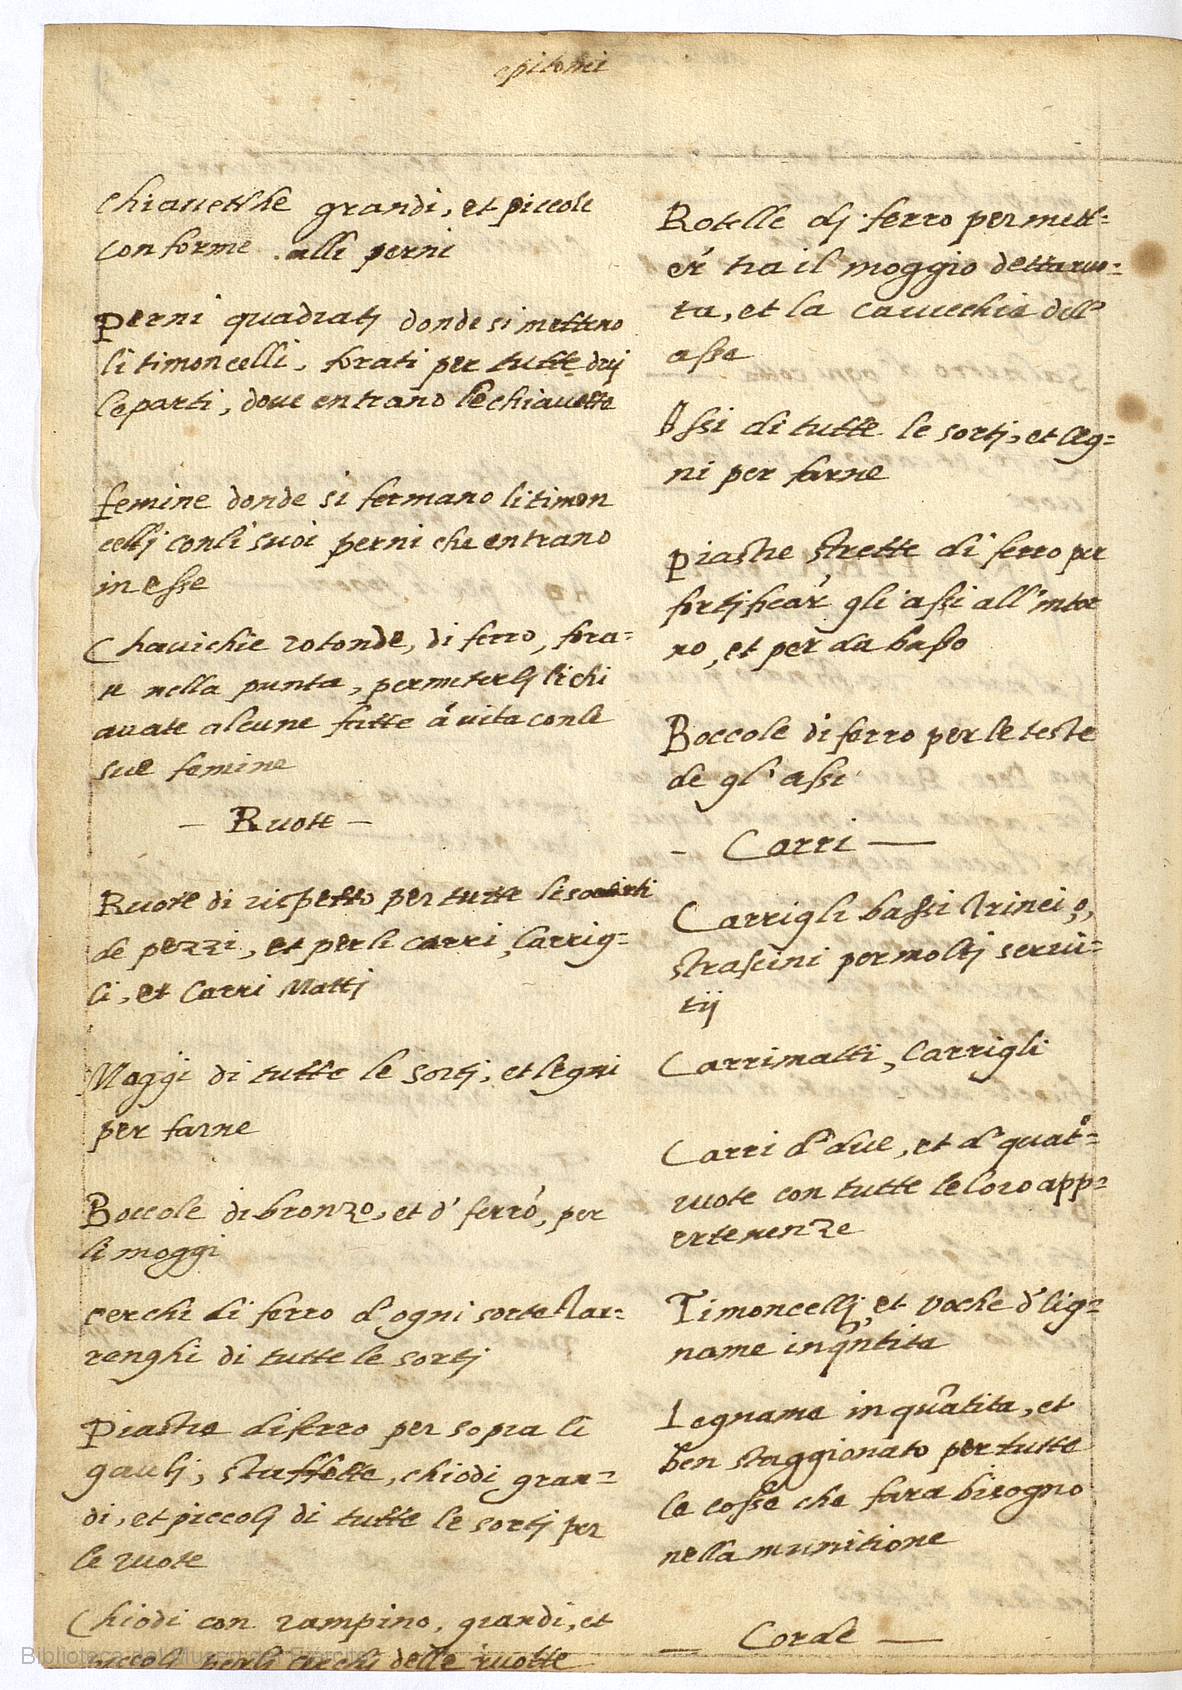 epitomi
Chiavetthe grandi, et piccole
conforme alli perni
Perni quadratj donde si mettino
li timoncelli, forati per tutte duj
le parti, dove entrano le chiavette
femine donde si fermano li timon
cellj con li suoi perni che entrano
in esse
Chavichie rotonde, di ferro, fora=
ti nella punta, per meterlj li chi
avate alcune fatte á vita con le
sue femine
- Ruote -
Ruote di rispetto per tutte le
de pezzi, et per li carri, Carrig=
li, et Carri Mattj
Moggi di tutte le sortj, et legni
per farne
Boccole di bronzo, et d' ferró, per
li moggi
cerchi di ferro d'ogni sorte Jar=
renghi di tutte le sortj
Piastre di ferro per sopra li
gaulj, staffette, chiodi gran=
di, et piccolj di tutte le sortj per
le ruote
Chiodi con rampino, grandi, et
piccolj perlj cerchi delle ruotte
Rotelle dj ferro per mett=
er tra il moggio detta ruo=
ta, et la cavechia dell'
asse
Assi di tutte le sortj, et leg=
ni per farne
Piastre strette di ferro per
fortjficar gli assi all' intor
no, et per da basso
Boccole di ferro per le teste
de gl' assi
- Carri -
Carrigli bassi Trinci, o,
strascini per moltj servi=
tij
Carrimatti, Carrigli
Carri d' due, et d' quat=
ruote con tutte le loro app=
ertenenze
Timoncellj, et voche d' lig=
name in qntita
Legname in quatita, et
ben staggionato per tutte
le cosse che fara bisogno
nella munitione
- Corde -
Biblioteca del Museo del Ejército